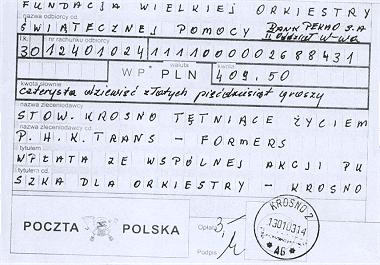 FUNDACJA WIELKIEJ ORKIESTRY
nazwa odbiorcy cd.
ŚWIĄTECZNEJ POMOCY BANK PEKAO S.A
II ODDZIAŁ W-WA
l.k. nr rachunku odbiorcy
30 12401024 1111000002688431
waluta kwota
WP PLN 409.50
kwota słownie
czterysta dziewięć złotych pięćdziesiąt groszy
nazwa zleceniodawcy
STOW. KROSNO TĘTNIĄCE ŻYCIEM
nazwa zleceniodawcy cd.
P.H.K. TRANS-FORMERS
tytułem
WPŁATA ZE WSPÓLNEJ AKCJI PU
tytułem cd.
SZKA DLA ORKIESTRY - KROSNO
POCZTA POLSKA
Opłata 3,-
Podpis
KROSNO 2
13010314
* AG *